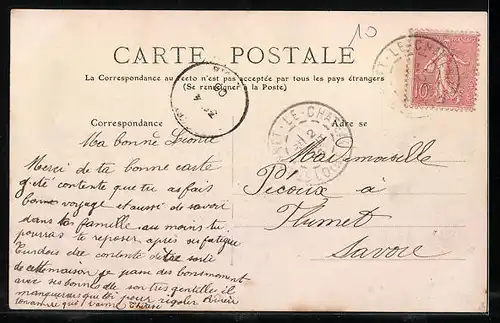 10
CARTE POSTALE
La Correspondance au recto n'est pas acceptée par tous les pays étrangers
(Se renseigner à la Poste)
Correspondance
Adresse
Ma bonne Léonie
Merci de ta bonne carte
je été contente que tu as fait
bon voyage et aussi de savoir
dans ta famille au moins tu
pourras te reposer après ses fatigue
Tu dois être contente d'être sortie
de cette maison je passe des bons moment
avec ses bonnes elle son très gentille il
manquerais que toi pour rigoler Adieu
ton amie qui t'aime Thérèse
Mademoiselle
Picoux à
Flumet
Savoie
-LE-CHÂ
10